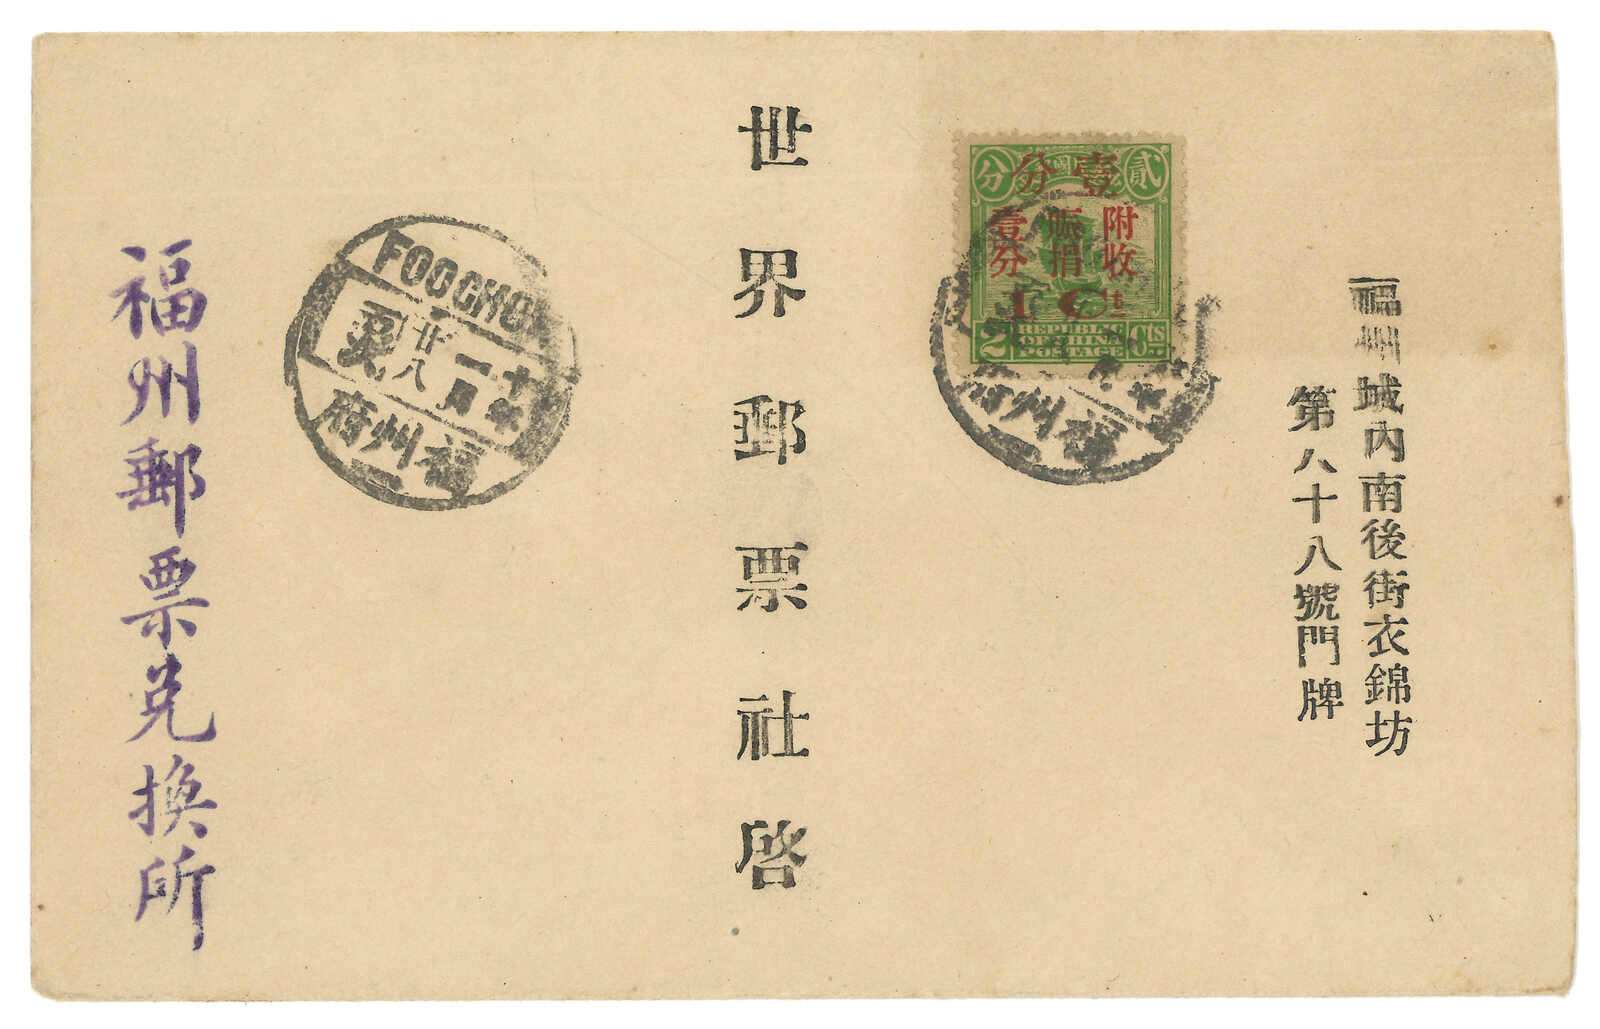 福州城內南後街衣錦坊
第八十八號門牌
世界郵票社啓
福州郵票兌換所
分壹
附收
賑捐
壹分
1 Ct
分 貳
2 Cts
REPUBLIC
OF CHINA
POSTAGE
FOOCHOW
廿八
一月
福州府
福州府